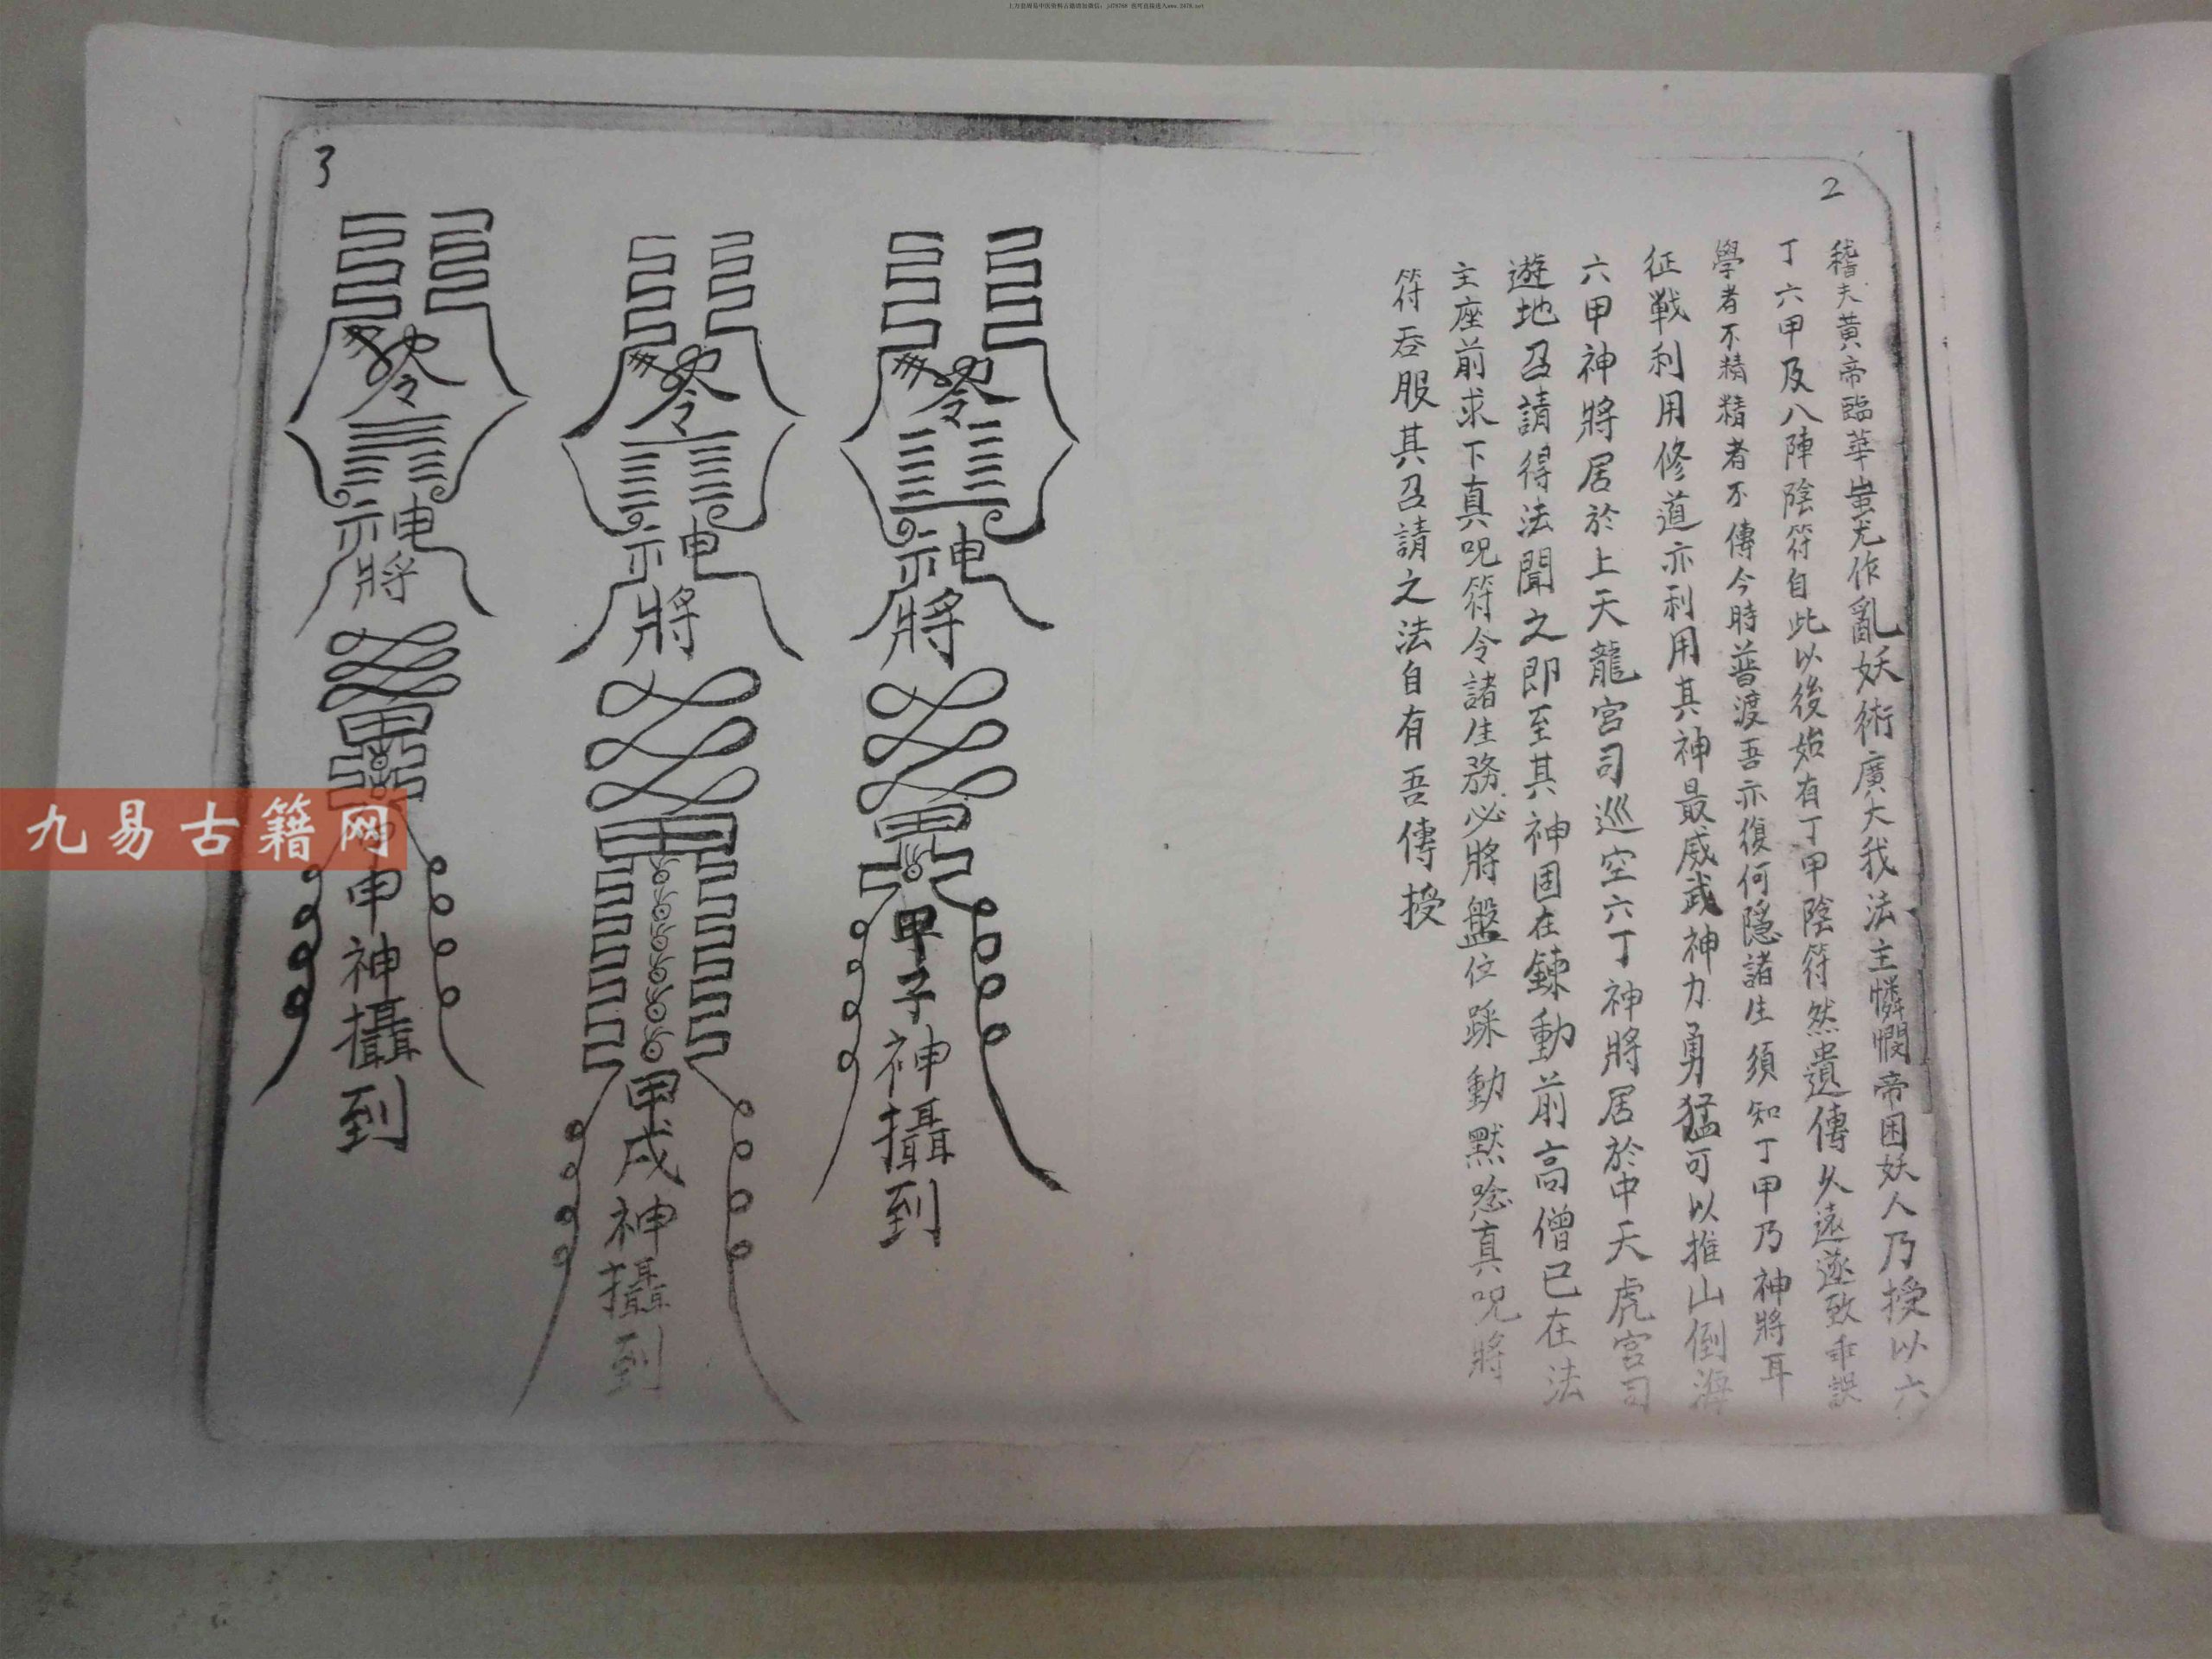 2
稽夫黃帝臨華蚩尤作亂妖術廣大我法主憐憫帝困妖人乃授以六
丁六甲及八陣陰符自此以後始有丁甲陰符然遺傳久遠遂致乖誤
學者不精精者不傳今時普渡吾亦復何隱諸生須知丁甲乃神將耳
征戰利用修道亦利用其神最威武神力勇猛可以推山倒海
六甲神將居於上天龍宮司巡空六丁神將居於中天虎宮司
遊地召請得法聞之即至其神固在鍊動前高僧已在法
主座前求下真呪符令諸生務必將盤位踩動默唸真呪將
符吞服其召請之法自有吾傳授
令
神
將
甲子神攝到
令
神
將
甲戌神攝到
3
令
神
將
申神攝到
九易古籍网